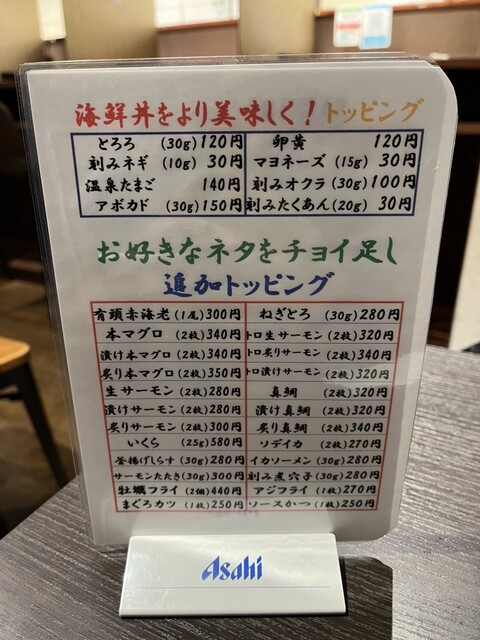 海鮮丼をより美味しく！トッピング
とろろ (30g) 120円 卵黄 120円
刻みネギ (10g) 30円 マヨネーズ (15g) 30円
温泉たまご 140円 刻みオクラ (30g) 100円
アボカド (30g) 150円 刻みたくあん (20g) 30円
お好きなネタをチョイ足し
追加トッピング
有頭赤海老 (1尾) 300円 ねぎとろ (30g) 280円
本マグロ (2枚) 340円 トロ生サーモン (2枚) 320円
漬け本マグロ (2枚) 340円 トロ炙りサーモン (2枚) 340円
炙り本マグロ (2枚) 350円 トロ漬けサーモン (2枚) 320円
生サーモン (2枚) 280円 真鯛 (2枚) 320円
漬けサーモン (2枚) 280円 漬け真鯛 (2枚) 320円
炙りサーモン (2枚) 300円 炙り真鯛 (2枚) 340円
いくら (25g) 580円 ソデイカ (2枚) 270円
釜揚げしらす (30g) 280円 イカソーメン (30g) 280円
サーモンたたき (30g) 300円 刻み煮穴子 (30g) 280円
牡蠣フライ (2個) 440円 アジフライ (1枚) 270円
まぐろカツ (1枚) 250円 ソースかつ (1枚) 250円
Asahi